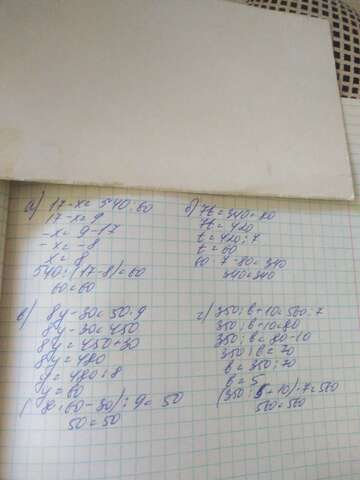 а) 17-x=540:60
17-x=9
-x=9-17
-x=-8
x=8
540:(17-8)=60
60=60
б) 7t=340+80
7t=420
t=420:7
t=60
60·7-80=340
340=340
в) 8y-30=50·9
8y-30=450
8y=450+30
8y=480
y=480:8
y=60
(8·60-30):9=50
50=50
г) 350:в+10=560:7
350:в+10=80
350:в=80-10
350:в=70
в=350:70
в=5
(350:5+10)·7=560
560=560